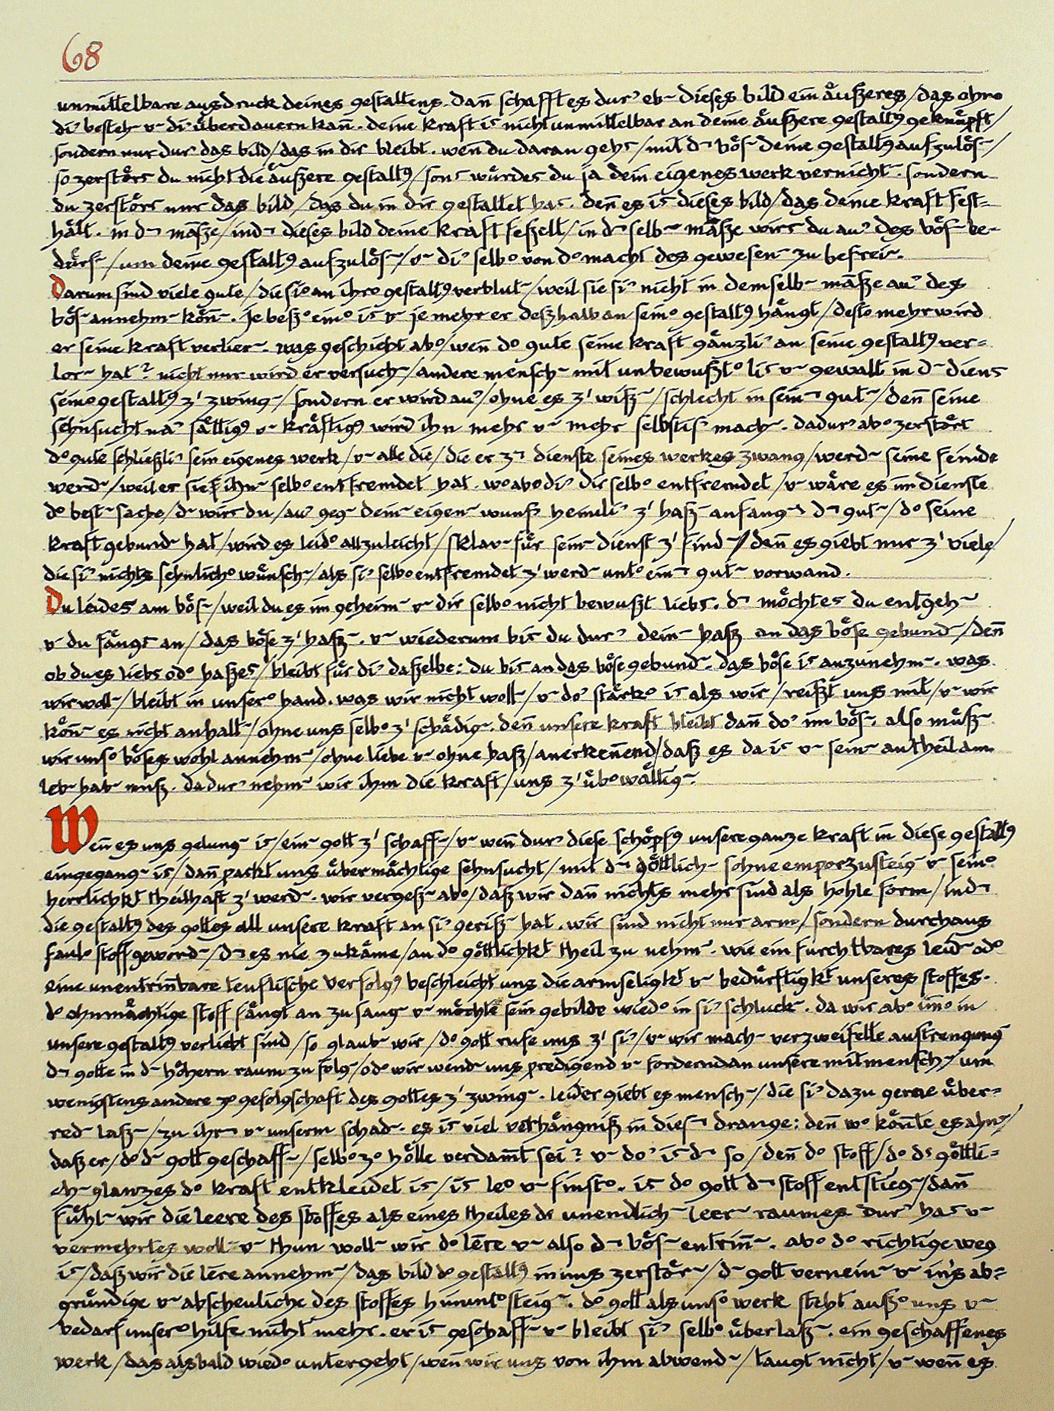 68
unmittelbare ausdruck deines gestaltens. dan̄ schafft es dur’ eb~ dieses bild ein äußeres / das ohne
di’ besteh~ v~ di’ überdauern kan̄. deine kraft is nicht unmittelbar an deine äußere gestaltg geknüpft /
sondern nur dur’ das bild / das in dir bleibt. wen̄ du daran gehs / mit d~ bös~ deine gestaltg aufzulös~ /
so zerstörs du nicht die äußere gestaltg / sons würdes du ja dein eigenes werk vernicht~. sondern
du zerstörs nur das bild / das du in dir gestaltet has. den̄ es is dieses bild / das deine kraft fest=
hält. in d~ maße / in d~ dieses bild deine kraft feßelt / in d~ selb~ maße wirs du au’ des bös~ be-
dürf~ / um deine gestaltg aufzulös~ / v~ di’ selbo von do macht des gewesen~ zu befrei~.
Darum sind viele gute / die sio an ihro gestaltg verblut~ / weil sie si’ nicht in demselb~ maße au’ des
bös~ annehm~ kön̄~. je beßo eino is v~ je mehr er deßhalb an seino gestaltg hängt / desto mehr wird
er seine kraft verlier~. was geschieht abo / wen̄ do gute seine kraft gänzli’ an seine gestaltg ver=
lor~ hat? nicht nur wird er versuch~ / andere mensch~ mit unbewußto lis v~ gewalt in d~ diens
seino gestaltg z’ zwing~ / sondern er wird au’ / ohne es z’ wiß~ / schlecht in sein~ gut~ / den̄ seine
sehnsucht na’ sättigg v~ kräftigg wird ihn mehr v~ mehr selbstis’ mach~. dadur’ abo zerstört
do gute schließli’ sein eigenes werk / v~ alle die / die er z~ dienste seines werkes zwang / werd~ seine feinde
werd~ / weil er sie ihn~ selbo entfremdet hat. wo abo di’ dir selbo entfremdet / v~ wäre es im dienste
do best~ sache / d~ wirs du / au’ geg~ dein~ eigen~ wuns’ heimli’ z’ haß~ anfang~. d~ gut~ / do seine
kraft gebund~ hat / wird es leido allzuleicht / sklav~ für sein~ dienst z’ find~ / den̄ es giebt nur z’ viele /
die si’ nichts sehnlicho wünsch~ / als si’ selbo entfremdet z’ werd~ unto ein~ gut~ vorwand.
Du leides am bös~ / weil du es im geheim~ v~ dir selbo nicht bewußt liebs. d~ möchtes du entgeh~
v~ du fängs an / das böse z’ haß~. v~ wiederum bis du dur’ dein~ haß an das böse gebund~ / den̄
ob du es liebs odo haßes / bleibt für di’ daßelbe: du bis an das böse gebund~. das böse is anzunehm~. was
wir woll~ / bleibt in unsero hand. was wir nicht woll~ / v~ do’ stärko is als wir / reißt uns mit / v~ wir
kön̄~ es nicht anhalt~ / ohne uns selbo z’ schädig~. den̄ unsere kraft bleibt dan̄ do’ im bös~. also müß~
wir unso böses wohl annehm~ / ohne liebe v~ ohne haß / anerken̄end / daß es da is v~ sein~ antheil am
leb~ hab~ muß. dadur’ nehm~ wir ihm die kraft / uns z’ übowältig~.
Wen̄ es uns gelung~ is / ein~ gott z’ schaff~ / v~ wen̄ dur’ diese schöpfg unsere ganze kraft in diese gestaltg
eingegang~ is / dan̄ packt uns übermächtige sehnsucht / mit d~ göttlich~ sohne emporzusteig~ v~ seino
herrlichkt theilhaft z’ werd~. wir vergeß~ abo / daß wir dan̄ nichts mehr sind als hohle form / ind~
die gestaltg des gottes all unsere kraft an si’ geriß~ hat. wir sind nicht nur arm / sondern durchaus
faulo stoff geword~ / d~ es nie zukäme / an do göttlichkt theil zu nehm~. wie ein furchtbares leid~ odo
eine unentrin̄bare teuflische verfolgg beschleicht uns die armseligkt v~ bedürftigkt unseres stoffes.
do ohnmächtige stoff fängt an zu saug~ v~ möchte sein gebilde wiedo in si’ schluck~. da wir abo im̄o in
unsere gestaltg verliebt sind / so glaub~ wir / do gott rufe uns z’ si’ / v~ wir mach~ verzweifelte anstrengung
d~ gotte in d~ höhern raum zu folg~ / odo wir wend~ uns predigend v~ fordernd an unsere mitmensch~ / um
wenigstens andere z~ gefolgschaft des gottes z’ zwing~. leider giebt es mensch~ / die si’ dazu gerne über=
red~ laß~ / zu ihr~ v~ unserm schad~. es is viel verhängniß in dies~ drange: den̄ wo kön̄te es ahn~ /
daß er / do d~ gott geschaff~ / selbo zo hölle verdam̄t sei? v~ do’ is d~ so / den̄ do stoff / do ds göttli=
ch~ glanzes do kraft entkleidet is / is leo v~ finsto. is do gott d~ stoff entstieg~ / dan̄
fühl~ wir die leere des stoffes als eines theiles ds unendlich~ leer~ raumes. dur’ has v~
vermehrtes woll~ v~ thun woll~ wir do leere v~ also d~ bös~ entrin̄~. abo do richtige weg
is / daß wir die leere annehm~ / das bild do gestaltg in uns zerstör~ / d~ gott vernein~ v~ in’s ab=
gründige v~ abscheuliche des stoffes hinuntosteig~. do gott als unso werk steht außo uns v~
bedarf unsero hilfe nicht mehr. er is geschaff~ v~ bleibt si’ selbo überlaß~. ein geschaffenes
werk / das alsbald wiedo untergeht / wen̄ wir uns von ihm abwend~ / taugt nicht / v~ wen̄ es